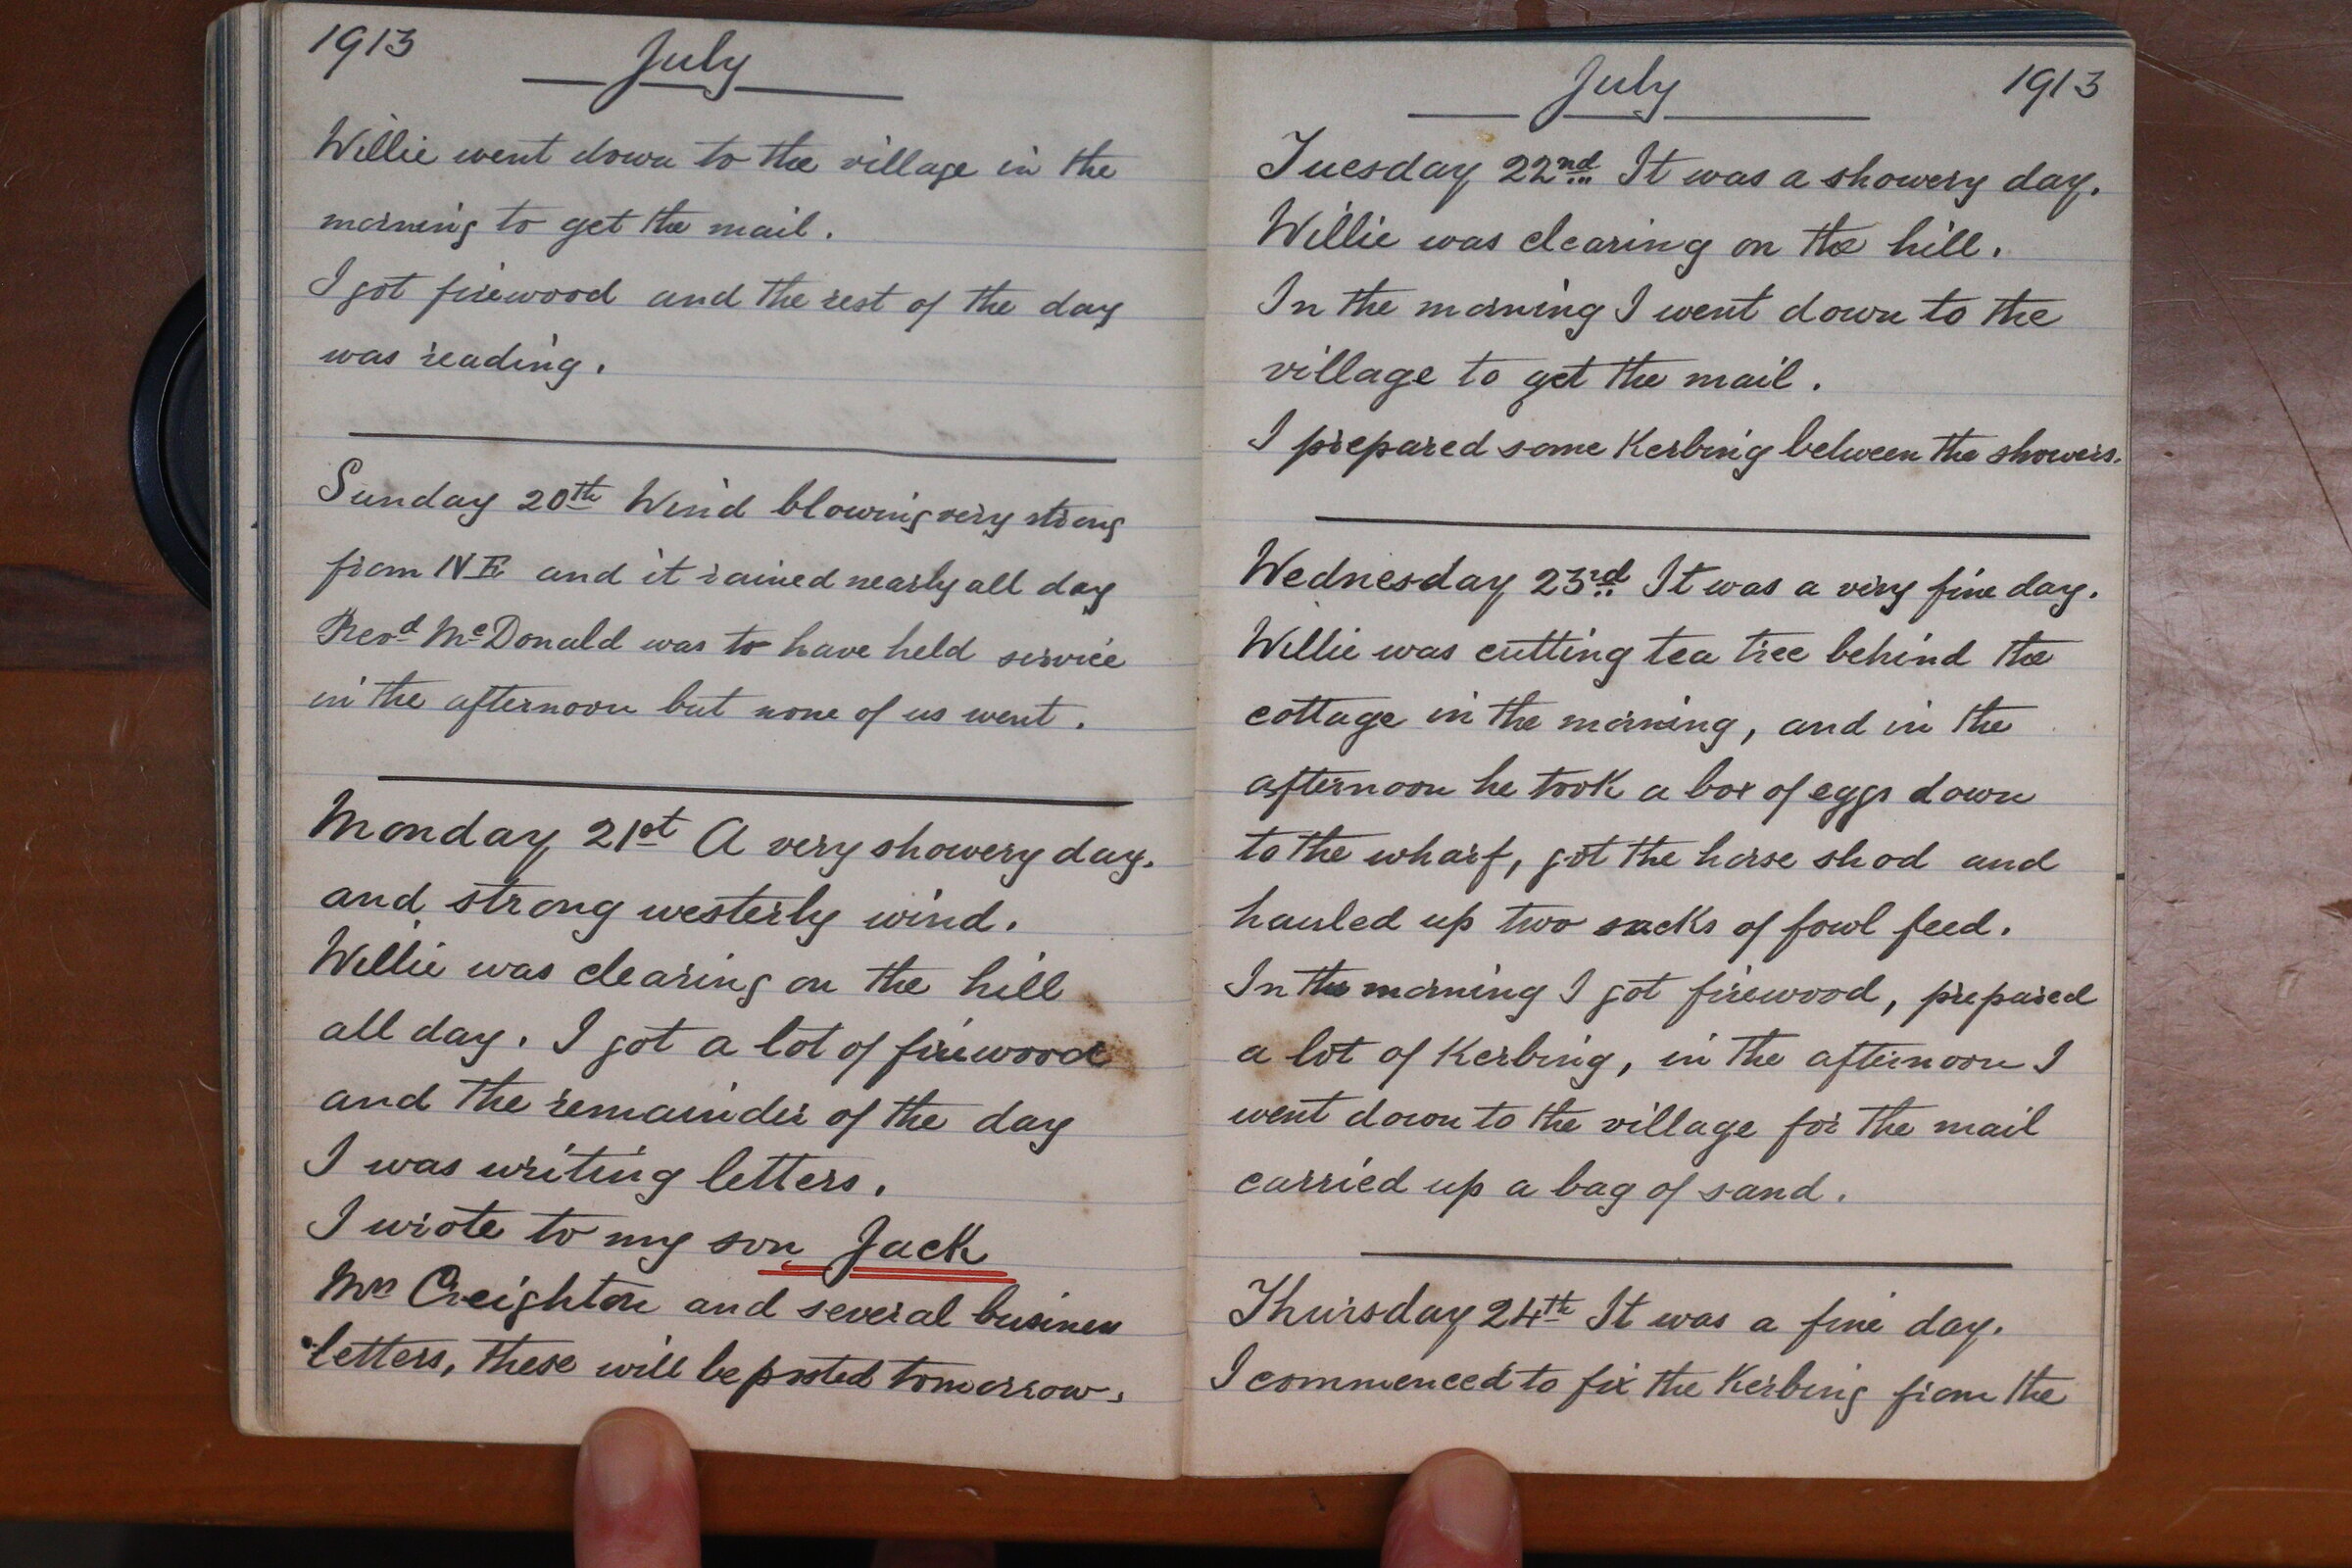 1913 July
Willie went down to the village in the
morning to get the mail.
I got firewood and the rest of the day
was reading.
Sunday 20th Wind blowing very strong
from NE and it rained nearly all day
Revd McDonald was to have held service
in the afternoon but none of us went.
Monday 21st A very showery day.
and strong westerly wind.
Willie was clearing on the hill
all day. I got a lot of firewood
and the remainder of the day
I was writing letters.
I wrote to my son Jack
Mrs Creighton and several business
letters, these will be posted tomorrow.
July 1913
Tuesday 22nd It was a showery day.
Willie was clearing on the hill.
In the morning I went down to the
village to get the mail.
I prepared some Kerbing between the showers.
Wednesday 23rd It was a very fine day.
Willie was cutting tea tree behind the
cottage in the morning, and in the
afternoon he took a box of eggs down
to the wharf, got the horse shod and
hauled up two sacks of fowl feed.
In the morning I got firewood, prepared
a lot of Kerbing, in the afternoon I
went down to the village for the mail
carried up a bag of sand.
Thursday 24th It was a fine day.
I commenced to fix the Kerbing from the